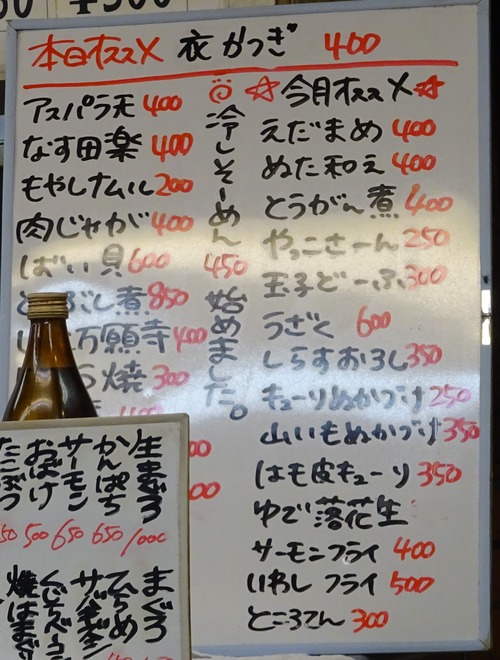 本日オススメ 衣かつぎ 400
アスパラ天 400
なす田楽 400
もやしナムル 200
肉じゃが 400
ばい貝 600
煮 850
万願寺 400
焼 300
冷しそーめん 450 始めました。
☆今月オススメ☆
えだまめ 400
ぬた和え 400
とうがん煮 400
やっこさーん 250
玉子どーふ 300
うざく 600
しらすおろし 350
キューリぬかづけ 250
山いもぬかづけ 350
はも皮キューリ 350
ゆで落花生
サーモンフライ 400
いわしフライ 500
ところてん 300
生まぐろ 1000
かんぱち 650
サーモン 650
おばけ 500
まぐろ
ひらめ